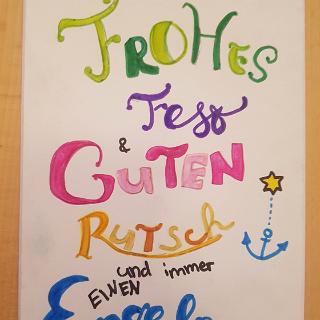 FROHES
Fest
&
GUTEN
RUTSCH
und immer
EINEN